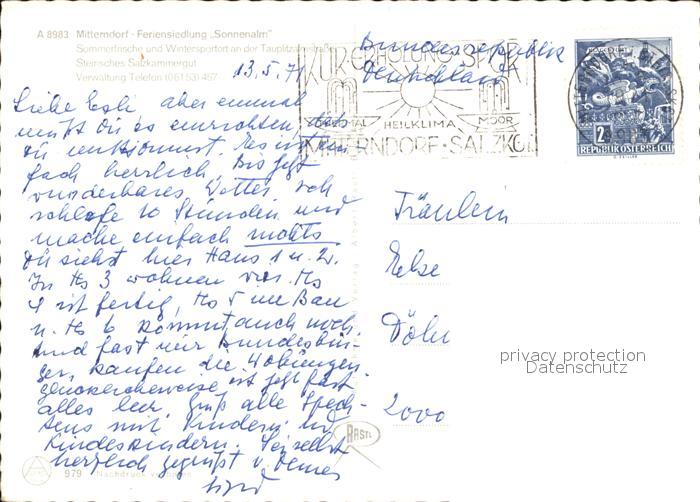 A 8983 Mitterndorf - Feriensiedlung „Sonnenalm"
Sommerfrische und Wintersportort an der Tauplitzalmstraße
Steirisches Salzkammergut
Verwaltung Telefon (06153) 467
13.5.71
Bundesrepublik
Deutschland
KUR·ERHOLUNG·SPORT
THERMAL HEILKLIMA MOOR
MITTERNDORF·SALZKG
2 S
REPUBLIK ÖSTERREICH
Liebe aber einmal
mußt du es einrichten, daß
du kommst. Es ist ein
fach herrlich, bis jetzt
wunderbares Wetter. Ich
schlafe 10 Stunden und
mache einfach nichts
Du siehst hier Haus 1 u. 2.
In Hs 3 wohnen wir. Hs
4 ist fertig, Hs 5 im Bau
u. Hs 6 kommt auch noch.
Und fast nur Bundesbür-
ger kaufen die Wohnungen.
Glücklicherweise ist jetzt fast
alles leer. Grüß alle
mit Kindern und
Kindeskindern. Sei selbst
herzlich gegrüßt v. Deiner
Fräulein
Döhr
2000
RASTL
979 Nachdruck verboten
privacy protection
Datenschutz